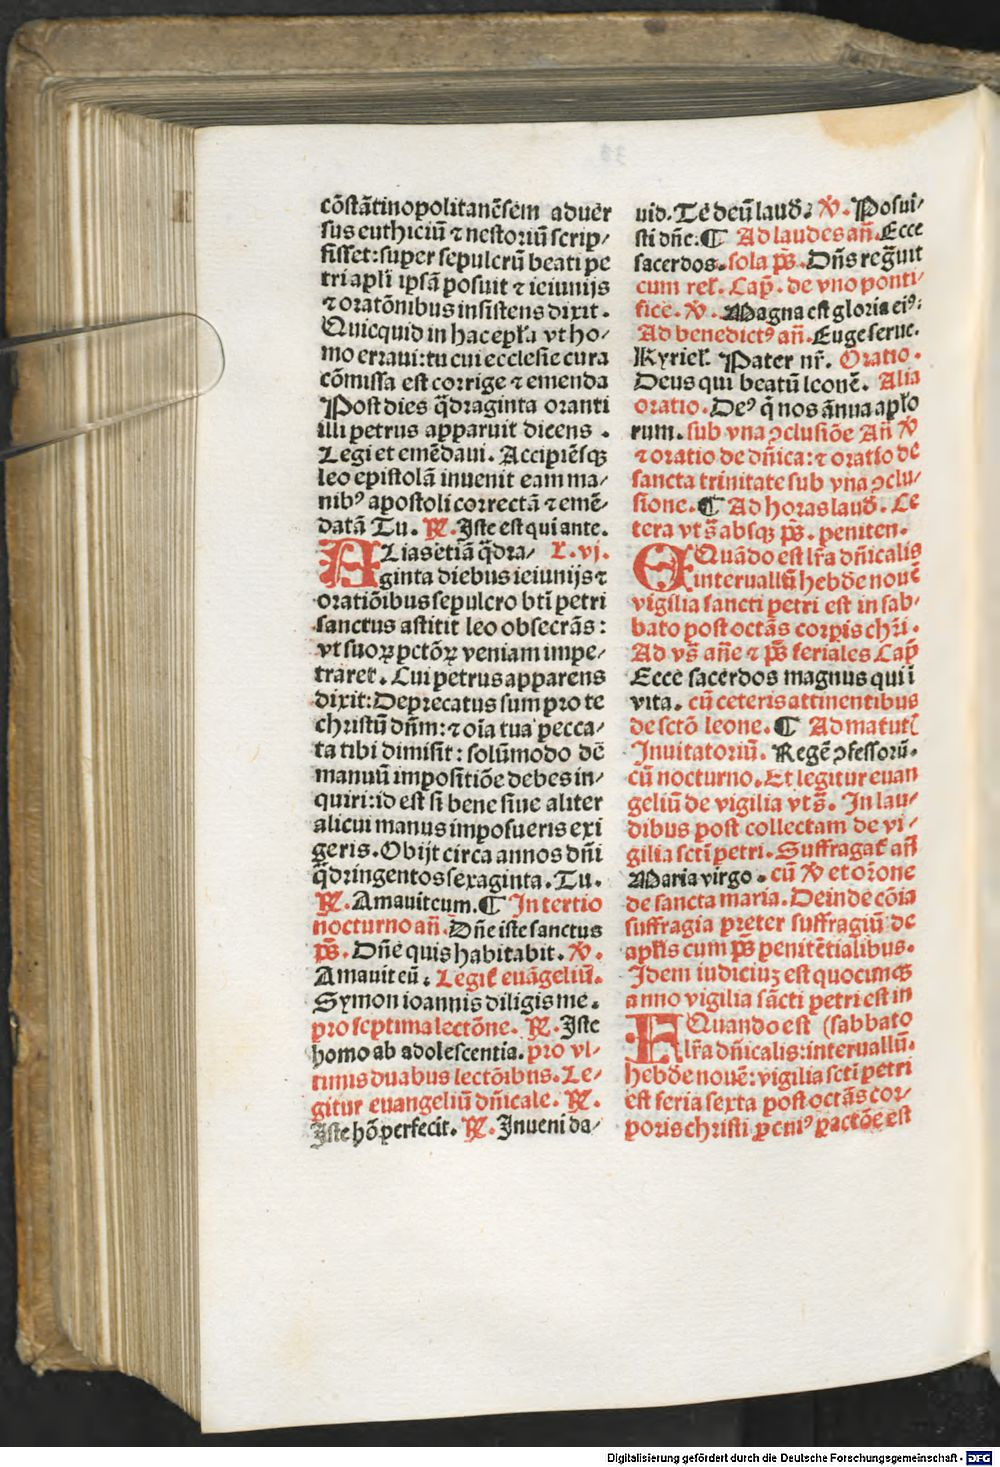 cōstātinopolitanēsem aduer
sus euthiciū ⁊ nestoriū scrip/
sisset: super sepulcrū beati pe
tri apl̄i ip̄sā posuit ⁊ ieiunijs
⁊ oratōnibus insistens dixit.
Quicquid in hac ep̄ła vt ho/
mo erraui: tu cui ecclesie cura
cōmissa est corrige ⁊ emenda
Post dies q̄draginta oranti
illi petrus apparuit dicens.
Legi et emēdaui. Accipiēsqꝫ
leo epistolā inuenit eam ma/
nibꝰ apostoli correctā ⁊ emē/
datā Tu. ℟. Iste est qui ante.
Alias etiā q̄dra/ L. vj.
ginta diebus ieiunijs ⁊
oratiōibus sepulcro bt̄i petri
sanctus astitit leo obsecrās:
vt suoꝝ pctōꝝ veniam impe/
traret. Cui petrus apparens
dixit: Deprecatus sum pro te
christū dn̄m: ⁊ oīa tua pecca/
ta tibi dimisit: solūmodo dē
manuū impositiōe debes in/
quiri: id est si bene siue aliter
alicui manus imposueris exi
geris. Obijt circa annos dn̄i
q̄dringentos sexaginta. Tu.
℟. Amauit eum. ¶ In tertio
nocturno an̄. Dn̄e iste sanctus
p̄s. Dn̄e quis habitabit. ℣.
Amauit eū: Legit̄ euāgeliū.
Symon ioannis diligis me.
pro septima lectōne. ℟. Iste
homo ab adolescentia. pro vl/
timis duabus lectōibus. Le/
gitur euangeliū dn̄icale. ℟.
Iste hō perfecit. ℟. Inueni da/
uid. Te deū laud̄. ℣. Posui/
sti dn̄e: ¶ Ad laudes an̄. Ecce
sacerdos. sola p̄s. Dn̄s regnuit
cum rel̄. Cap̄. de vno ponti/
fice. ℣. Magna est gloria eiꝰ:
Ad benedictꝰ an̄. Euge serue.
Kyriel̄. Pater nr̄. Oratio.
Deus qui beatū leonē. Alia
oratio. Deꝰ q̄ nos ānua apl̄o
rum. sub vna ꝯclusiōe An̄ ℣
⁊ oratio de dn̄ica: ⁊ oratio de
sancta trinitate sub vna ꝯclu/
sione. ¶ Ad horas laud̄. Ce
tera vt s̄ absqꝫ p̄s. peniten.
Quādo est lr̄a dn̄icalis
interuallū hebde nouē
vigilia sancti petri est in sab/
bato post octās corpis chr̄i.
Ad vs̄ an̄e ⁊ p̄s feriales Cap̄
Ecce sacerdos magnus qui ī
vita. cū ceteris attinentibus
de sctō leone. ¶ Ad matutī
Inuitatoriū. Regē ꝯfessorū.
cū nocturno. Et legitur euan
geliū de vigilia vt s̄. In lau/
dibus post collectam de vi/
gilia sct̄i petri. Suffragat̄ an̄
Maria virgo. cū ℣ et or̄one
de sancta maria. Deinde cōia
suffragia preter suffragiū de
apl̄is cum p̄s penitētialibus.
Idem iudiciuꝫ est quocunqꝫ
anno vigilia sācti petri est in
Quando est (sabbato
lr̄a dn̄icalis: interuallū.
hebde nouē: vigilia sct̄i petri
est feria sexta post octās cor/
poris christi ꝑ eniꝰ pactōe est
Digitalisierung gefördert durch die Deutsche Forschungsgemeinschaft - DFG